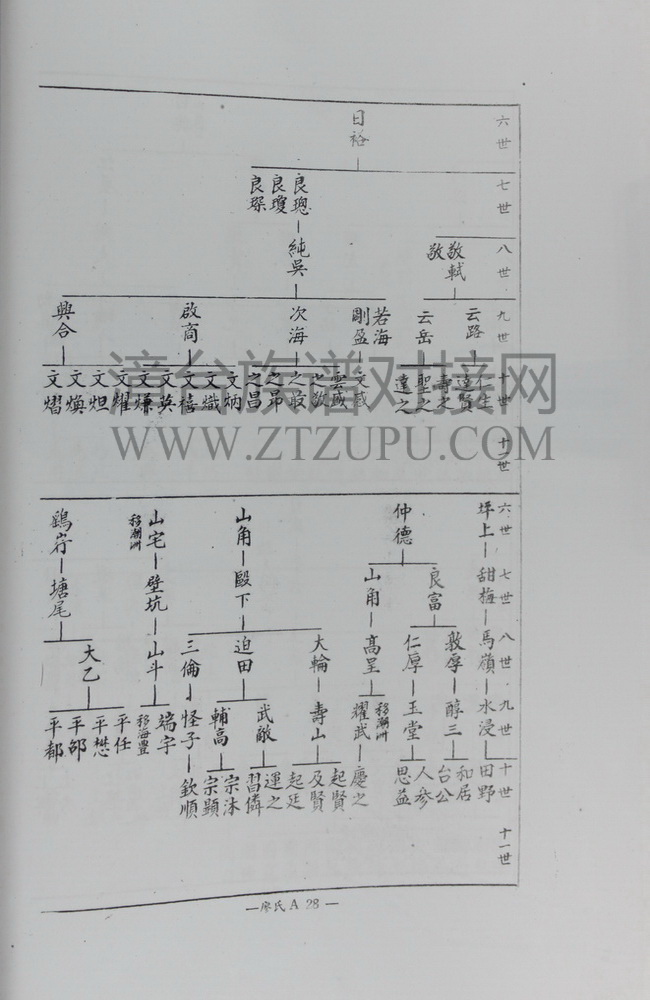 六世
七世
八世
九世
十世
十一世
日裕
良璁
良瓊
良琛
純吳
敬軾
敬
云路
云岳
若海
剛盈
次海
啟商
興合
仁生
達賢
壽之
聖之
達之
文感
雲感
之敬
之敢
之昂
之昌
文炳
文熾
文禧
文英
文爃
文耀
文炟
文煥
文熠
漳台族谱对接网
WWW.ZTZUPU.COM
六世
七世
八世
九世
十世
十一世
坪上
甜梅
馬嶺
水浸
田野
和居
仲德
良富
敦厚
醇三
台公
人參
仁厚
玉堂
思益
山角
高呈
移潮洲
耀武
慶之
山角
殿下
大輪
壽山
起賢
及賢
起廷
迫田
武敵
運之
習憐
輔高
宗沐
宗顯
三倫
怪子
欽順
山宅
移潮洲
壁坑
山斗
端宇
移海豊
鷄岃
塘尾
大乙
平任
平懋
平郃
平都
—廖氏 A 28 —